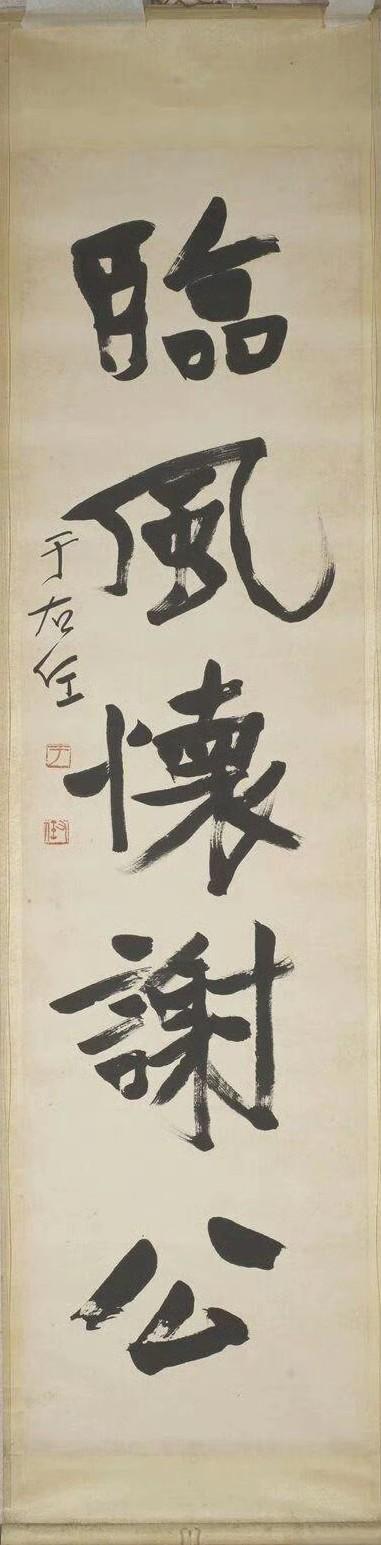 臨風懷謝公
于右任